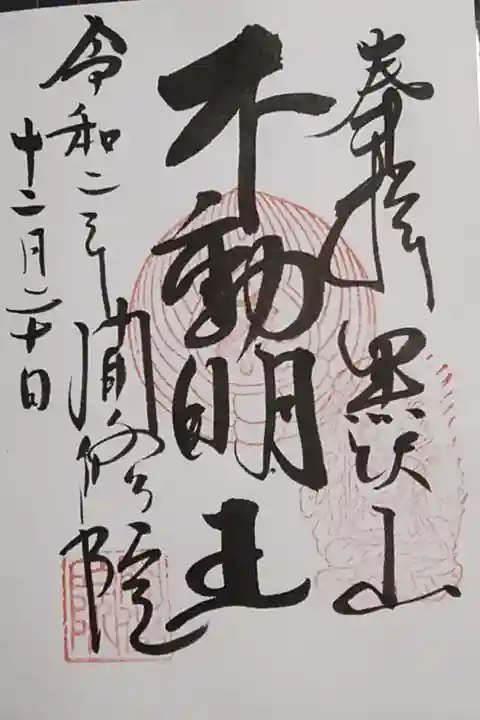 奉拝 黒沢山
不動明王
令和二年
十二月二十日
聞修院